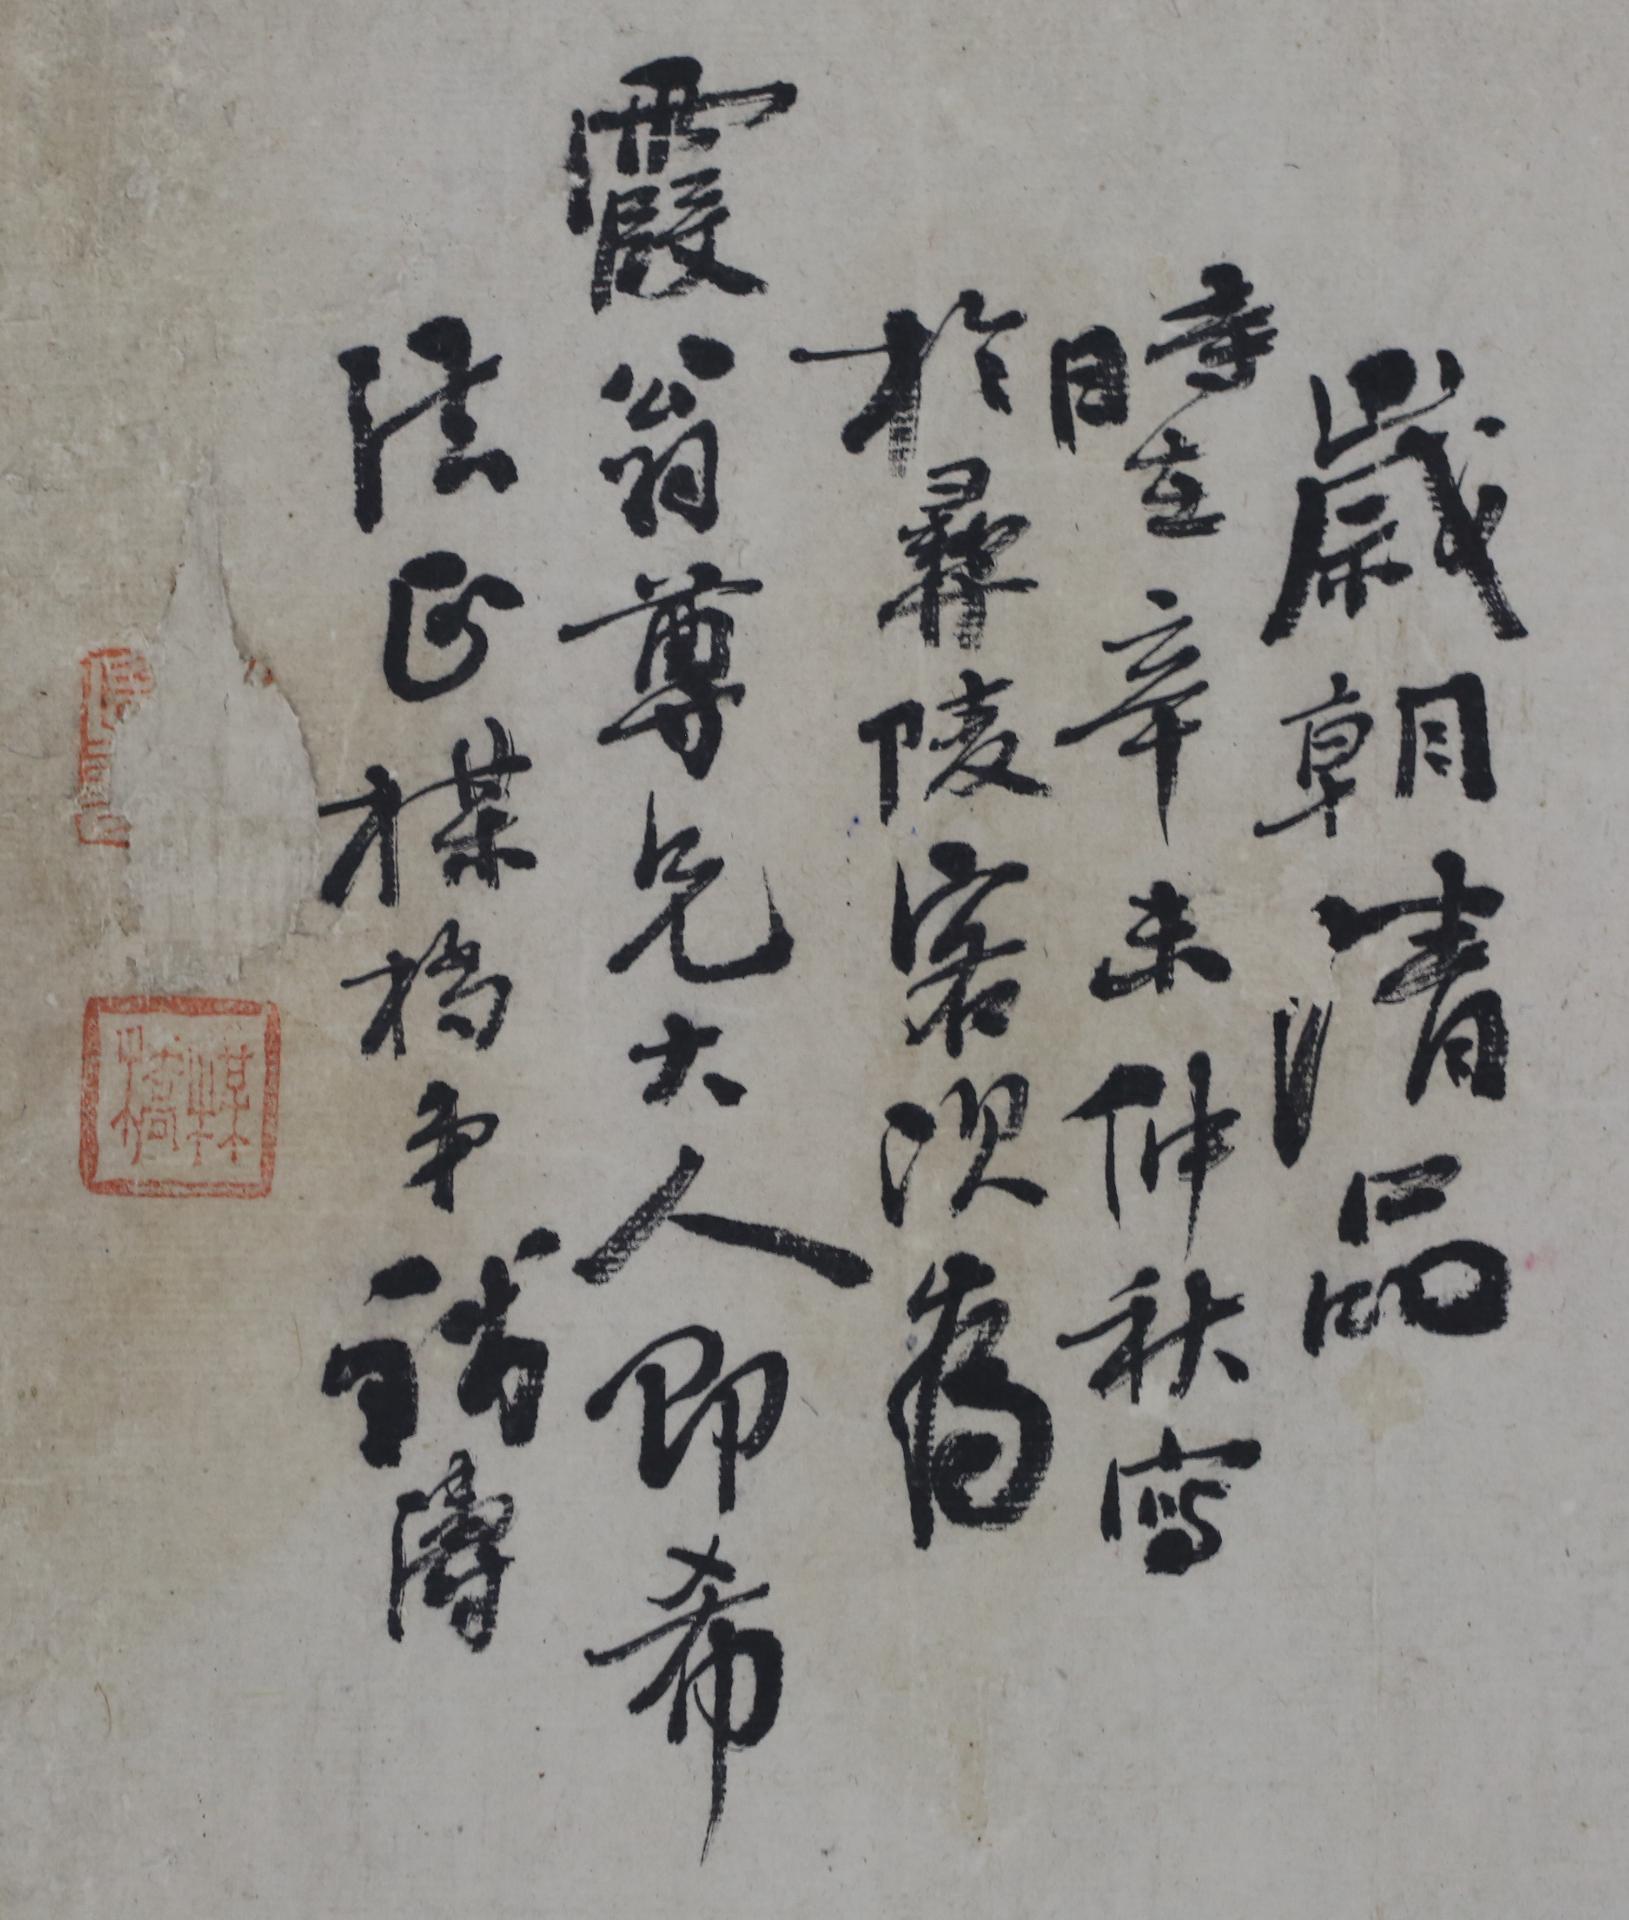 歲朝清品
時在辛未仲秋寫
於彝陵客次爲
霞翁尊兄大人即希
法正楳橋弟
楳橋